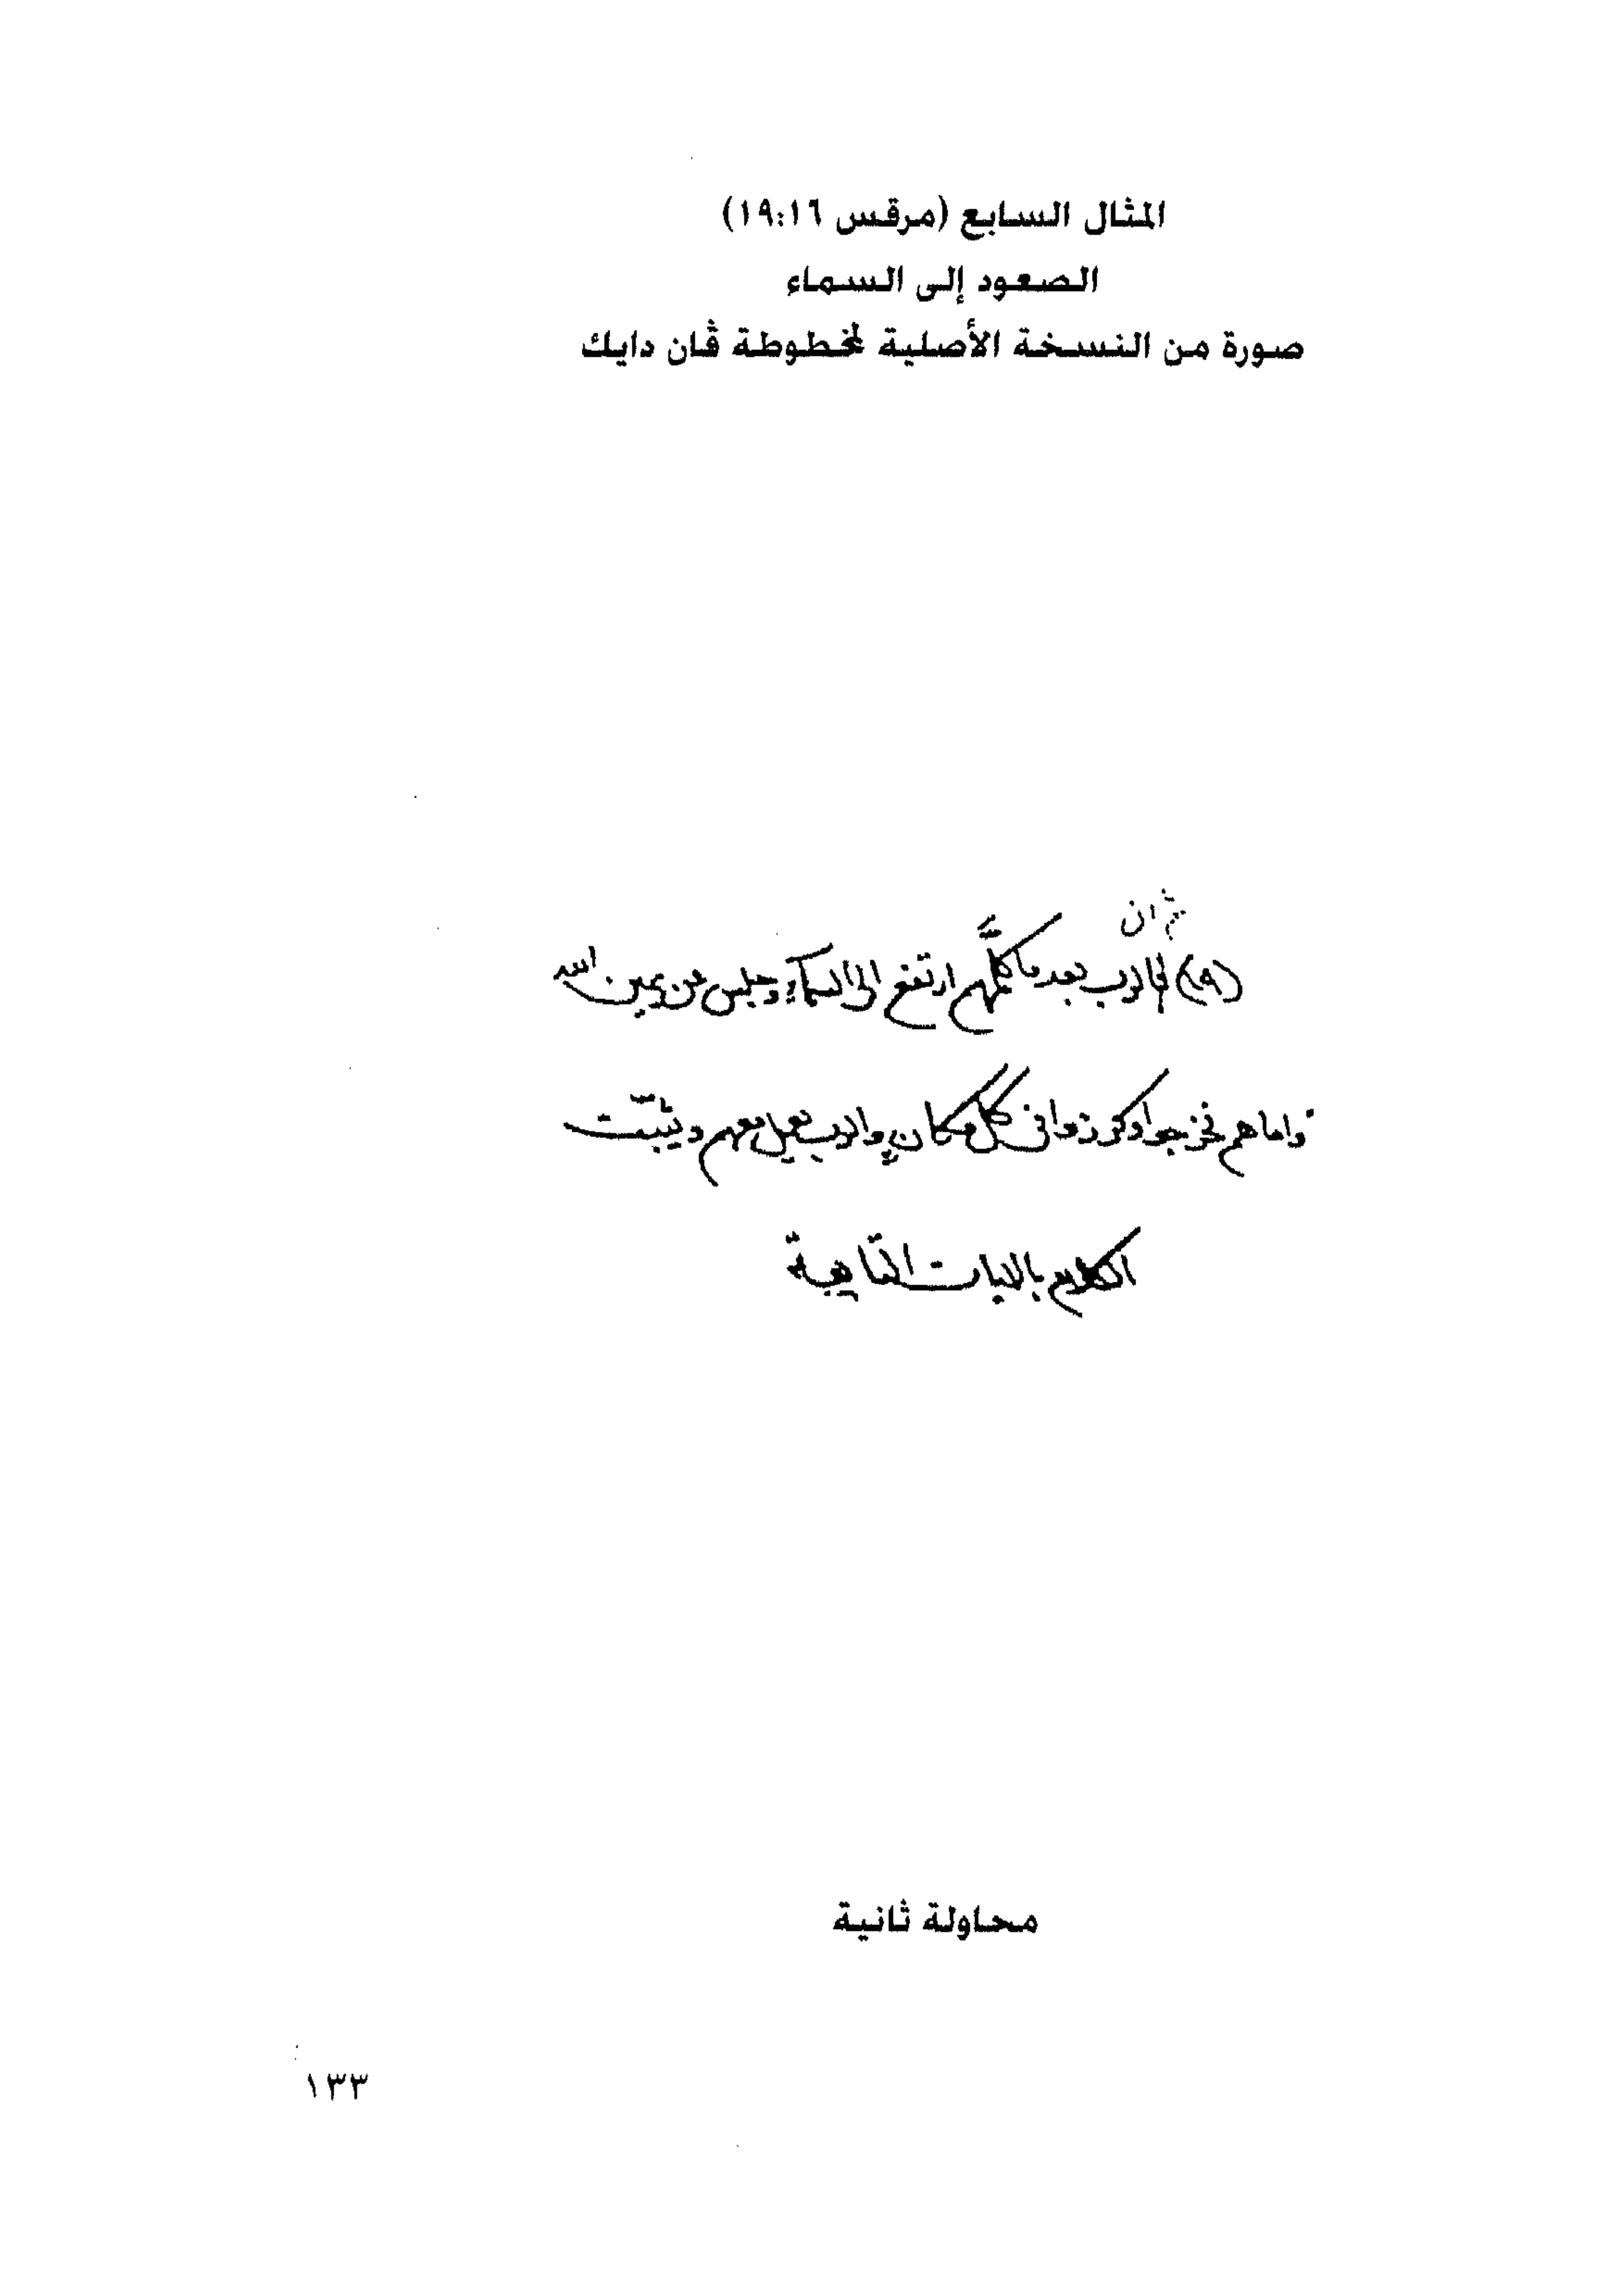 المثال السابع (مرقس ١٩:١٦)
الصعود إلى السماء
صورة من النسخة الأصلية لمخطوطة ڤان دايك
ثم ان
(١٩) فالرب بعدما كلَّمهم ارتفع الى السمآء وجلس عن يمين الله
واما هم فخرجوا وكرزوا في كل مكانٍ والرب يعمل معهم ويثبّت
الكلام بالايات التابعة
محاولة ثانية
١٣٣